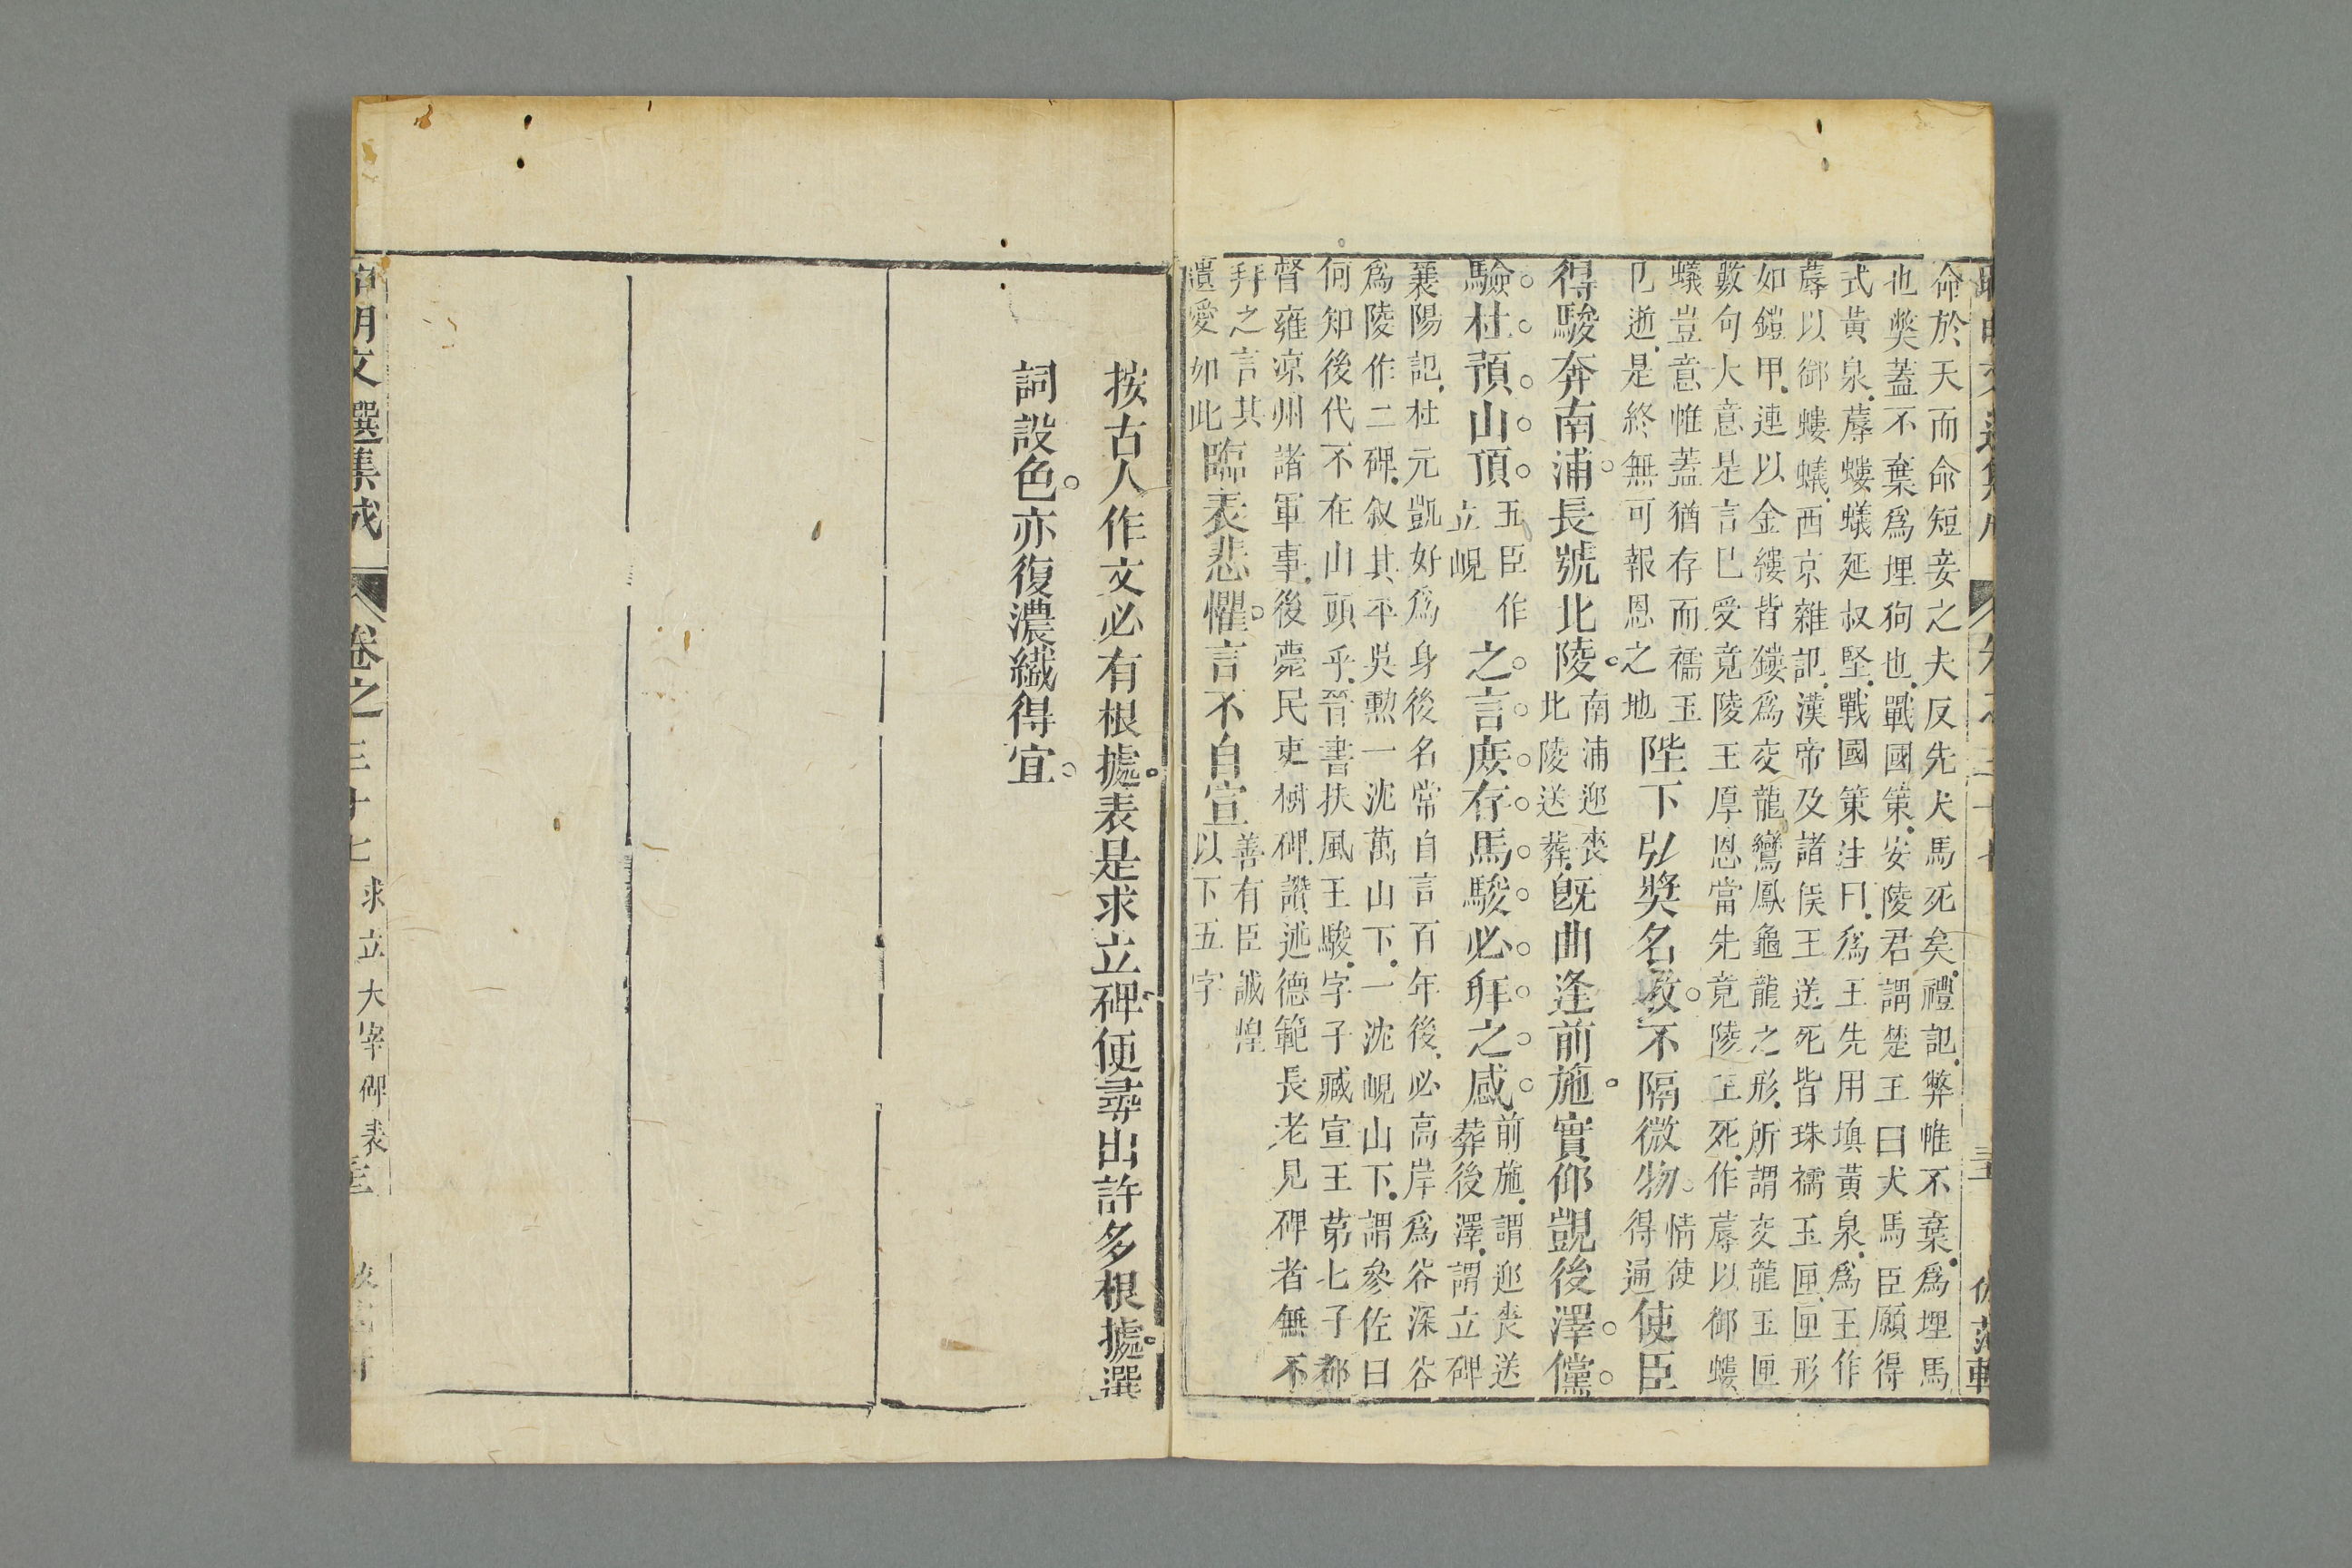 命於天而命短妾之夫反先犬馬死矣禮記弊帷不棄爲埋馬
也獘蓋不棄爲埋狗也戰國策安陵君謂楚王曰犬馬臣願得
式黃泉蓐螻蟻延叔堅戰國策注曰爲王先用塡黃泉爲王作
蓐以御螻蟻西京雜記漢帝及諸侯王送死皆珠襦玉匣匣形
如鎧甲連以金縷皆鏤爲交龍鸞鳳龜龍之形所謂交龍玉匣
數句大意是言已受竟陵王厚恩當先竟陵王死作蓐以御螻
蟻豈意帷蓋猶存而襦玉
已逝是終無可報恩之地
陛下弘獎名教不隔微物
情使
得通
使臣
得駿奔南浦長號北陵
南浦迎喪
北陵送葬
旣曲逢前施實仰覬後澤儻
驗杜預山頂
五臣作
立峴
之言庶存馬駿必拜之感
前施謂迎喪送
葬後澤謂立碑
襄陽記杜元凱好爲身後名常自言百年後必高岸爲谷深谷
爲陵作二碑叙其平吳勲一沈萬山下一沈峴山下謂參佐曰
何知後代不在山頭乎晉書扶風王駿字子臧宣王第七子都
督雍凉州諸軍事後薨民吏樹碑讚述德範長老見碑者無不
拜之言其
遺愛如此
臨表悲懼言不自宣
善有臣誠惶
以下五字
按古人作文必有根據表是求立碑便尋出許多根據選
詞設色亦復濃纎得宜
明文選集成
卷之三十七
求立大宰碑表